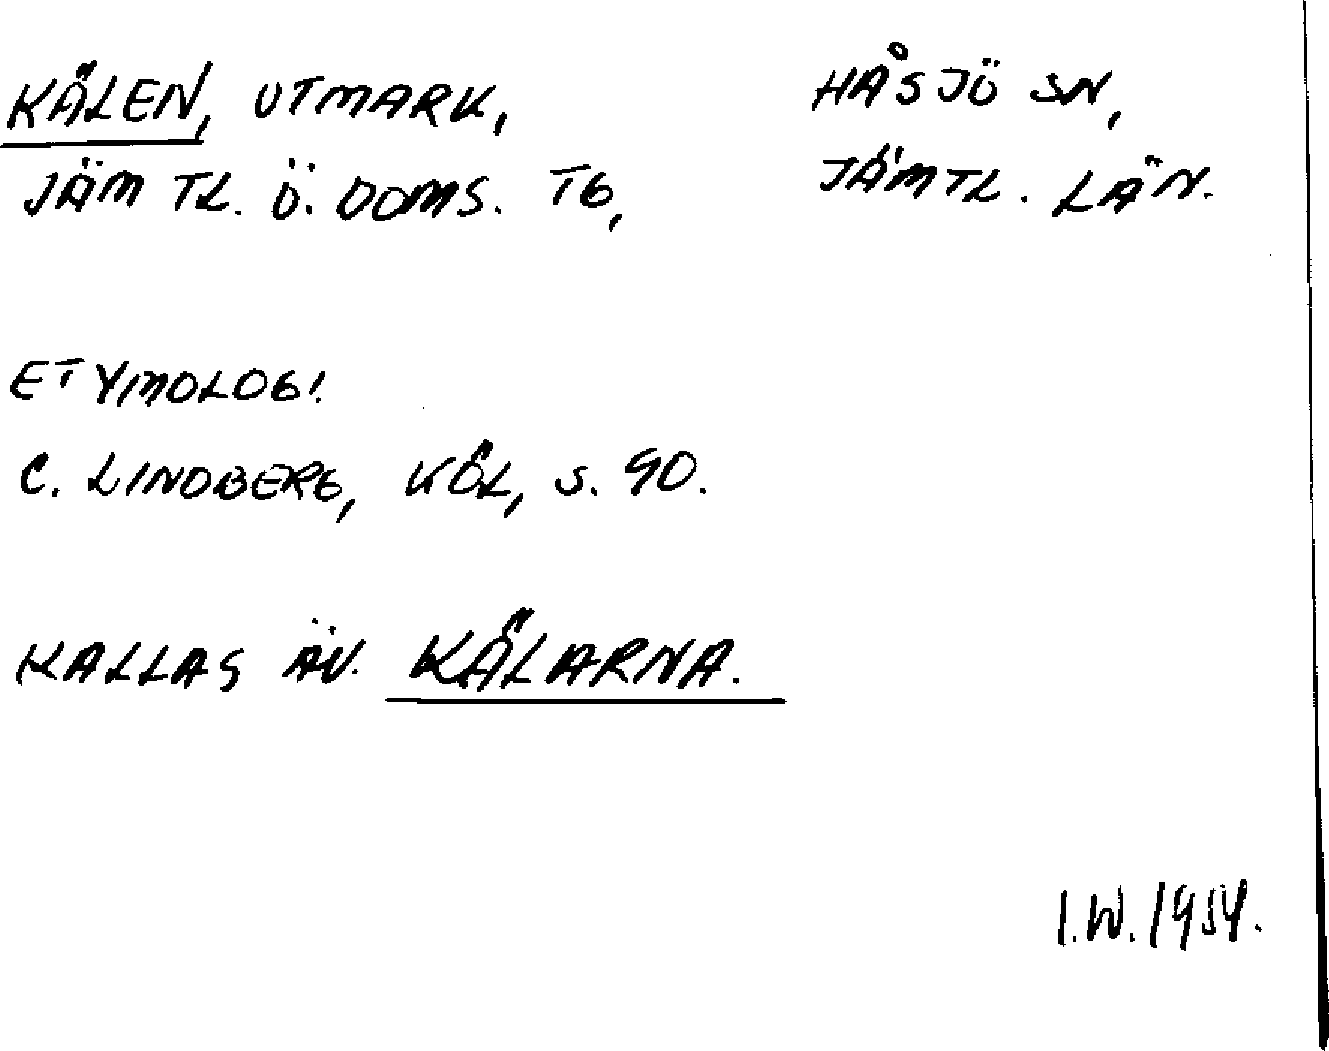 KÄLEN, UTMARK,
HÅSJÖ SN,
JÄMTL. Ö. DOMS. TG,
JÄMTL. LÄN.
ETYMOLOGI
C. LINDBERG, KÖL, S. 90.
KALLAS ÄV. KÄLARNA.
I.W. 1954.